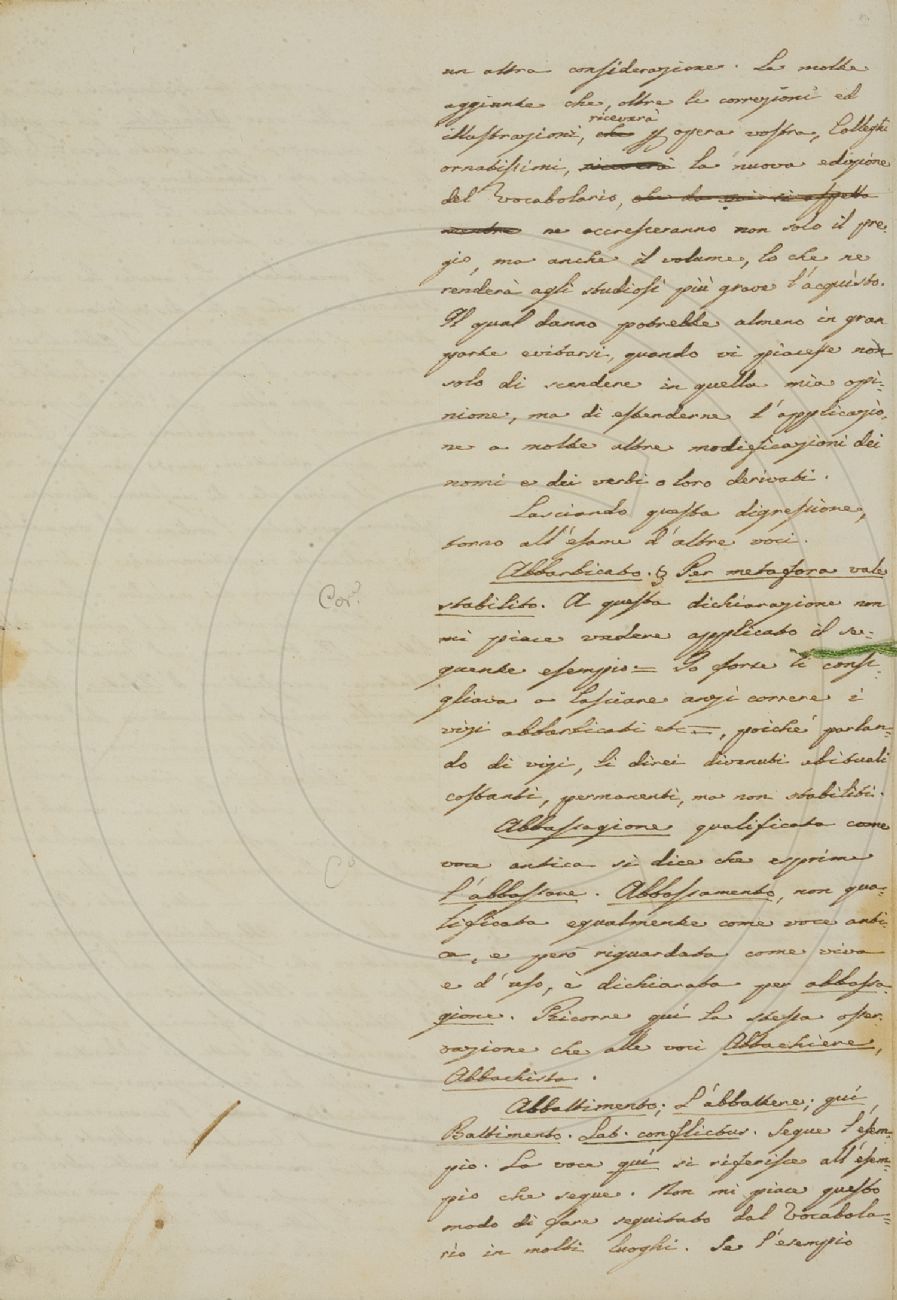 un altra considerazione. Le molte
aggiunte che, oltre le correzioni ed
ricevarà
illustrazioni, che opera vostra, Colleghi
ornatissimi, riceverà la nuova edizione
del Vocabolario, che da voi si aspetta
mentre ne accresceranno non solo il pre-
gio, ma anche il volume, lo che ne
renderà agli studiosi più grave l'acquisto.
Il qual danno potrebbe almeno in gran
parte evitarsi, quando vi piacesse non
solo di scendere in quella mia opi-
nione, ma di estenderne l'applicazio-
ne a molte altre modificazioni dei
nomi e dei verbi o loro derivati.
Lasciando questa digressione,
torno all'esame d'altre voci.
Abbarbicato. § Per metafora vale
Cor.e
stabilito. A questa dichiarazione non
mi piace vedere applicato il se-
guente esempio = Io forse ti consi-
gliava a lasciare anzi correre i
vizi abbarbicati etc =, poiché parlan-
do di vizi, li direi divenuti abituali
costanti, permanenti, ma non stabiliti.
Abbassagione qualificata come
voce antica si dice che esprime
Co
l'abbassare. Abbassamento, non qua-
lificata egualmente come voce anti-
ca, e però riguardata come viva
e d'uso, è dichiarata per abbassa-
gione. Ricorre quì la stessa osser-
vazione che alle voci Abbachiere,
Abbachista.
Abbattimento; L'abbattere; quí
Battimento. Lat. conflictus. Segue l'esem-
pio. La voce quí si riferisce all'esem-
pio che segue. Non mi piace questo
modo di fare seguitato dal Vocabola-
rio in molti luoghi. Se l'esempio